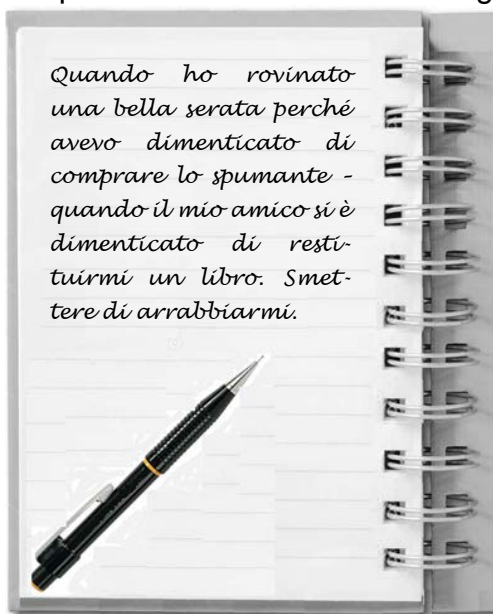 Quando ho rovinato
una bella serata perché
avevo dimenticato di
comprare lo spumante –
quando il mio amico si è
dimenticato di resti-
tuirmi un libro. Smet-
tere di arrabbiarmi.